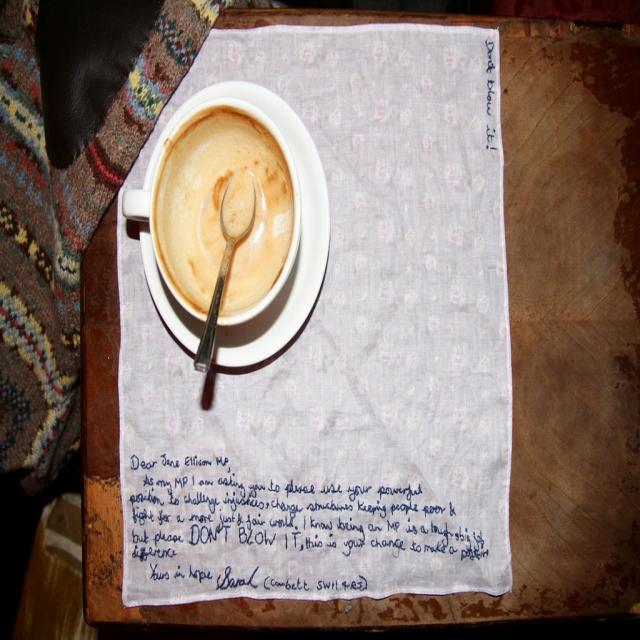 Don't blow it!
Dear Jane Ellison MP,
As my MP I am asking you to please use your powerful
position to challenge injustices, change structures keeping people poor &
fight for a more just & fair world. I know being an MP is a tough job
but please DON'T BLOW IT, this is your chance to make a positive
difference
Yours in hope Sarah (Corbett SW11